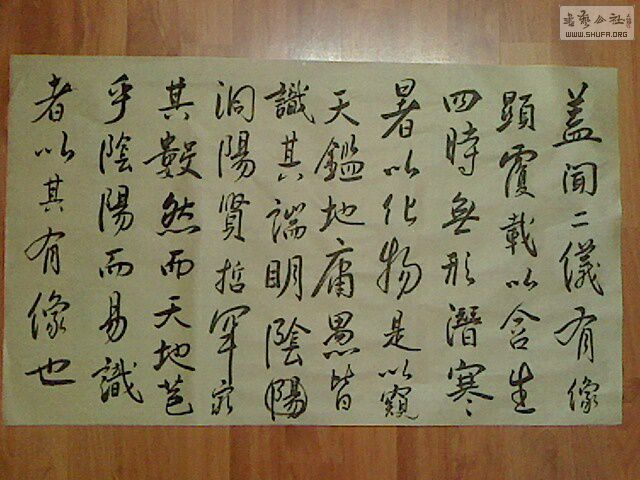 盖聞二儀有像
顯覆載以含生
四時無形潛寒
暑以化物是以窺
天鑑地庸愚皆
識其端明陰陽
洞陽賢哲罕窮
其數然而天地苞
乎陰陽而易識
者以其有像也
書藝公社
WWW.SHUFA.ORG